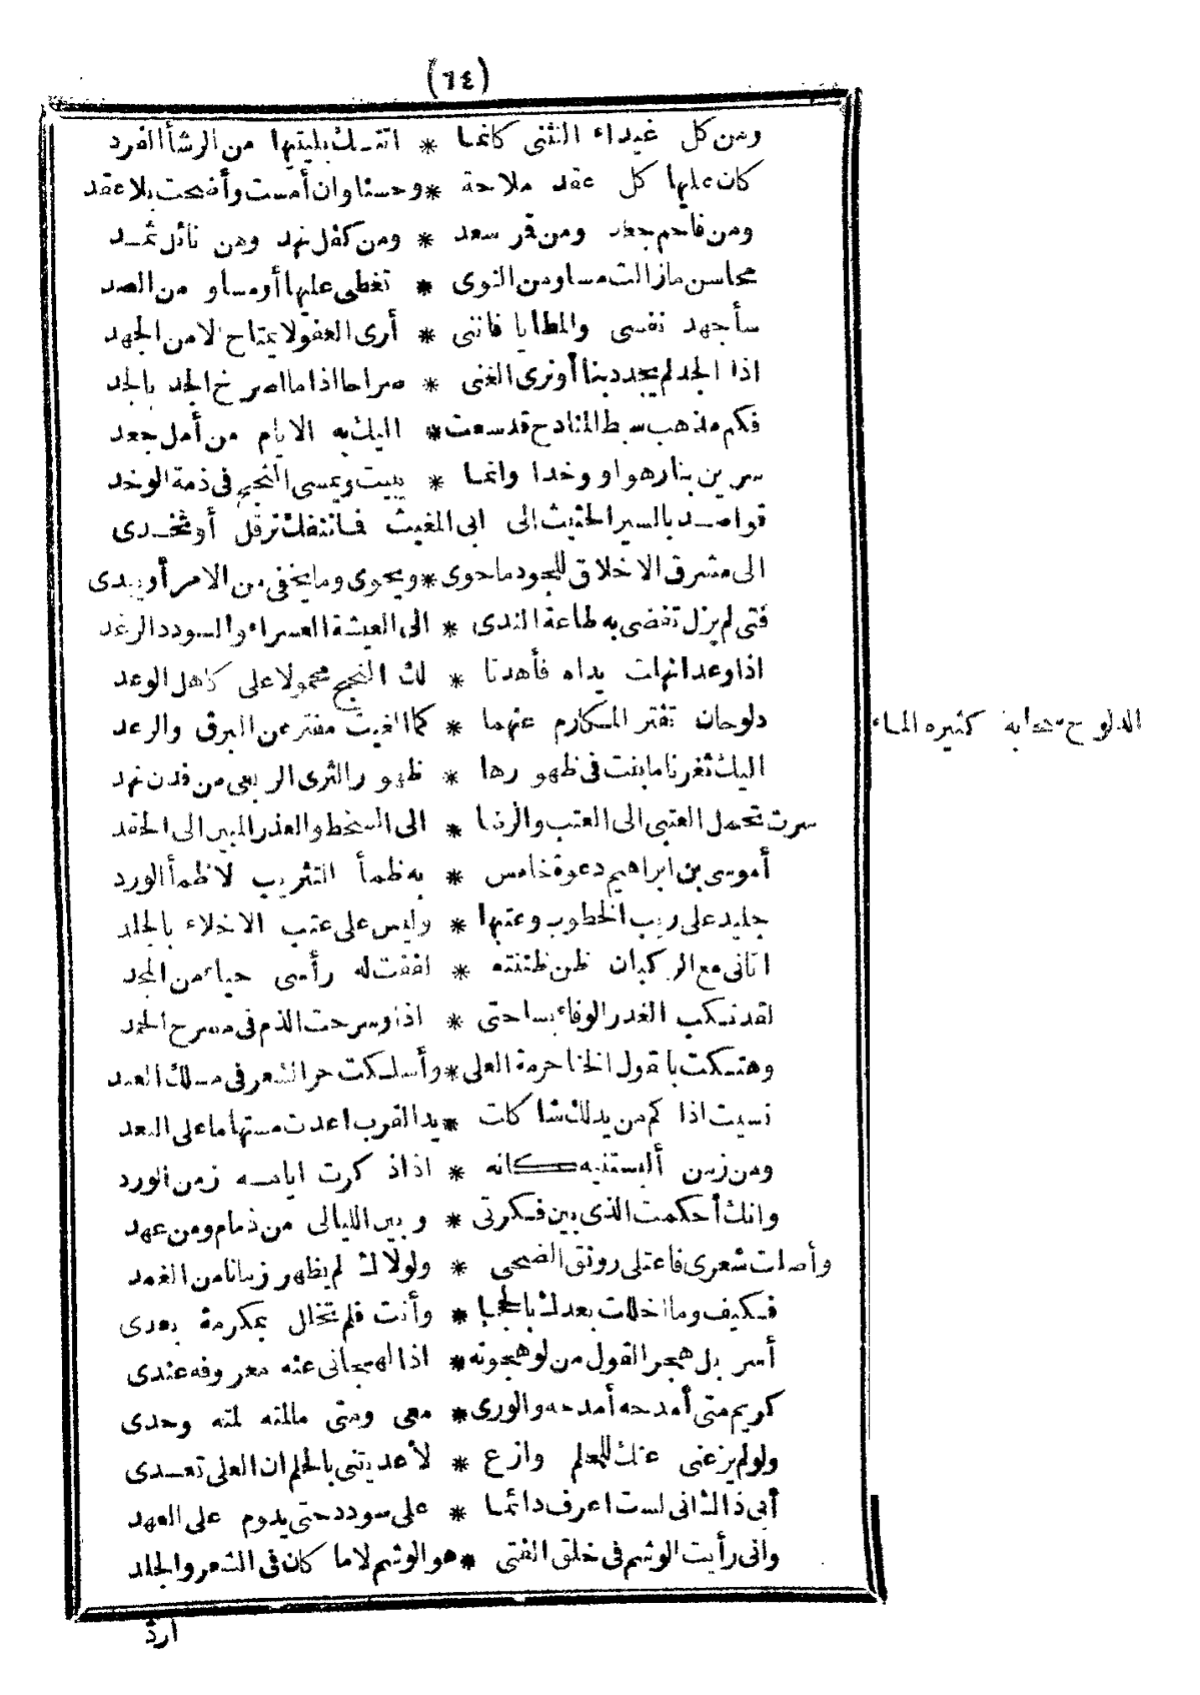 (٦٤)
ومن كل غيداء التثنى كأنما * اتتك بليتيها من الرشأ الفرد
كان عليها كل عقد ملاحة * وحسنا وان أمست وأضحت بلا عقد
ومن فاحم جعد ومن قمر سعد * ومن كفل نهد ومن نائل ثمد
محاسن مازالت مساو من النوى * تغطى عليها أو مساو من الصد
سأجهد نفسى والمطايا فاننى * أرى العفو لا يمتاح الا من الجهد
اذا الجد لم يجدد بنا أو نرى الغنى * صراحا اذا ما اصرخ الجد بالجد
فكم مذهب سبط المنادح قد سعت * اليك به الايام من أمل جعد
سرين بنا رهوا ووخدا وانما * يبيت ويمسى النجح فى ذمة الوخد
قواصد بالسير الحثيث الى ابى المغيث فما تنفك ترقل أو تخدى
الى مشرق الاخلاق للجود ما حوى * ويحوى وما يخفى من الامر أو يبدى
فتى لم يزل تفضى به طاعة الندى * الى العيشة العسراء والسودد الرغد
اذا وعد انهلت يداه فأهدتا * لك النجح محمولا على كاهل الوعد
دلوحان تفتر المكارم عنهما * كما الغيث مفتر عن البرق والرعد
الدلوح سحابة كثيره الماء
اليك ثغرنا ما بنت فى ظهورها * ظهور الثرى الربعى من فدن نهد
سرت تحمل العتبى الى العتب والرضا * الى السخط والعذر المبين الى الحقد
أموسى بن ابراهيم دعوة خامس * به ظمأ التثريب لا ظمأ الورد
جليد على ريب الخطوب وعتبها * وليس على عتب الاخلاء بالجلد
اتانى مع الركبان ظن ظننته * لففت له رأسى حياء من المجد
لقد نكب الغدر الوفاء بساحتى * اذا وسرحت الذم فى مسرح الحمد
وهتكت بالقول الخنا حرمة العلى * وأسلكت حر الشعر فى مسلك العبد
نسيت اذا كم من يد لك شاكلت * يد القرب اعدت مستهاما على البعد
ومن زمن ألبستنيه كانه * اذا ذكرت ايامه زمن الورد
وانك أحكمت الذى بين فكرتى * وبين الليالى من ذمام ومن عهد
وأصلت شعرى فاعتلى رونق الضحى * ولولاك لم يظهر زمانا من الغمد
فكيف وما اخللت بعدك بالحجا * وأنت فلم تخلل بمكرمة بعدى
أسربل هجر القول من لو هجوته * اذا لهجانى عنه معروفه عندى
كريم متى أمدحه أمدحه والورى * معى ومتى مالمته لمته وحدى
ولو لم يزعنى عنك للحلم وازع * لأعديتنى بالحلم ان العلى تعدى
أبى ذاك انى لست اعرف دائما * على سودد حتى يدوم على العهد
وانى رأيت الوشم فى خلق الفتى * هو الوشم لا ما كان فى الشعر والجلد
ارد